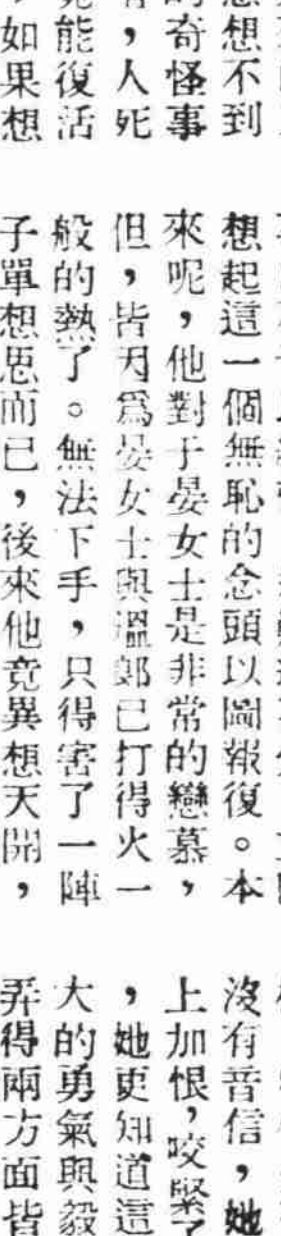 想不到
的奇怪事
，人死
能復活
如果想
想起這一個無恥的念頭以圖報復。本
來呢，他對于晏女士是非常的戀慕，
但，皆因爲晏女士與溫郞已打得火一
般的熱了。無法下手，只得害了一陣
子單想思而已，後來他竟異想天開，
沒有音信，她
上加恨，咬緊了
，她更知道這
大的勇氣與毅
弄得兩方面皆